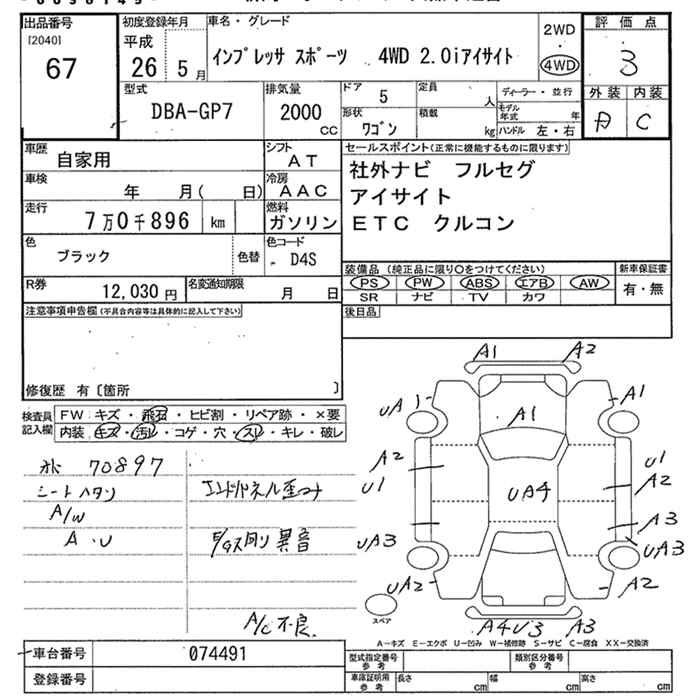 出品番号 初度登録年月 車名・グレード 2WD 評価点
[2040] 平成 インプレッサ スポーツ 4WD 2.0iアイサイト ・ 3
67 26 5月 4WD 外装 内装
型式 排気量 ドア 5 定員 人 ディーラー・並行 A C
DBA-GP7 2000 cc 形状 ワゴン 積載 kg モデル年式 年
ハンドル 左・右
車歴 自家用 シフト AT セールスポイント(正常に機能するものに限ります)
車検 年 月( 日) 冷房 AAC 社外ナビ フルセグ
走行 7万0千896 km 燃料 ガソリン アイサイト
色 ブラック 色替 色コード D4S ETC クルコン
R券 12,030円 名変通知期限 月 日 装備品(純正品に限り○をつけてください) 新車保証書
PS PW ABS エアB AW 有・無
SR ナビ TV カワ
注意事項申告欄(不具合内容等は具体的に記入して下さい) 後日品
修復歴 有〔箇所 〕
検査員 FW キズ・飛石・ヒビ割・リペア跡・×要
記入欄 内装 キズ・汚レ・コゲ・穴・スリ・キレ・破レ
A1 A2
UA1 A1 A1
A2 U1
U1 UA4 A2
A3
UA3 UA3
UA2 A2
スペア
A4U3 A3
70897
シートハタリ エンドパネル歪み
A/W
A・U 異音
A/C不良
A−キズ E−エクボ U−凹み W−補修跡 S−サビ C−腐食 XX−交換済
車台番号 074491 型式指定番号 参考 類別区分番号 参考
登録番号 車庫証明用 参考 長さ cm 幅 cm 高さ cm